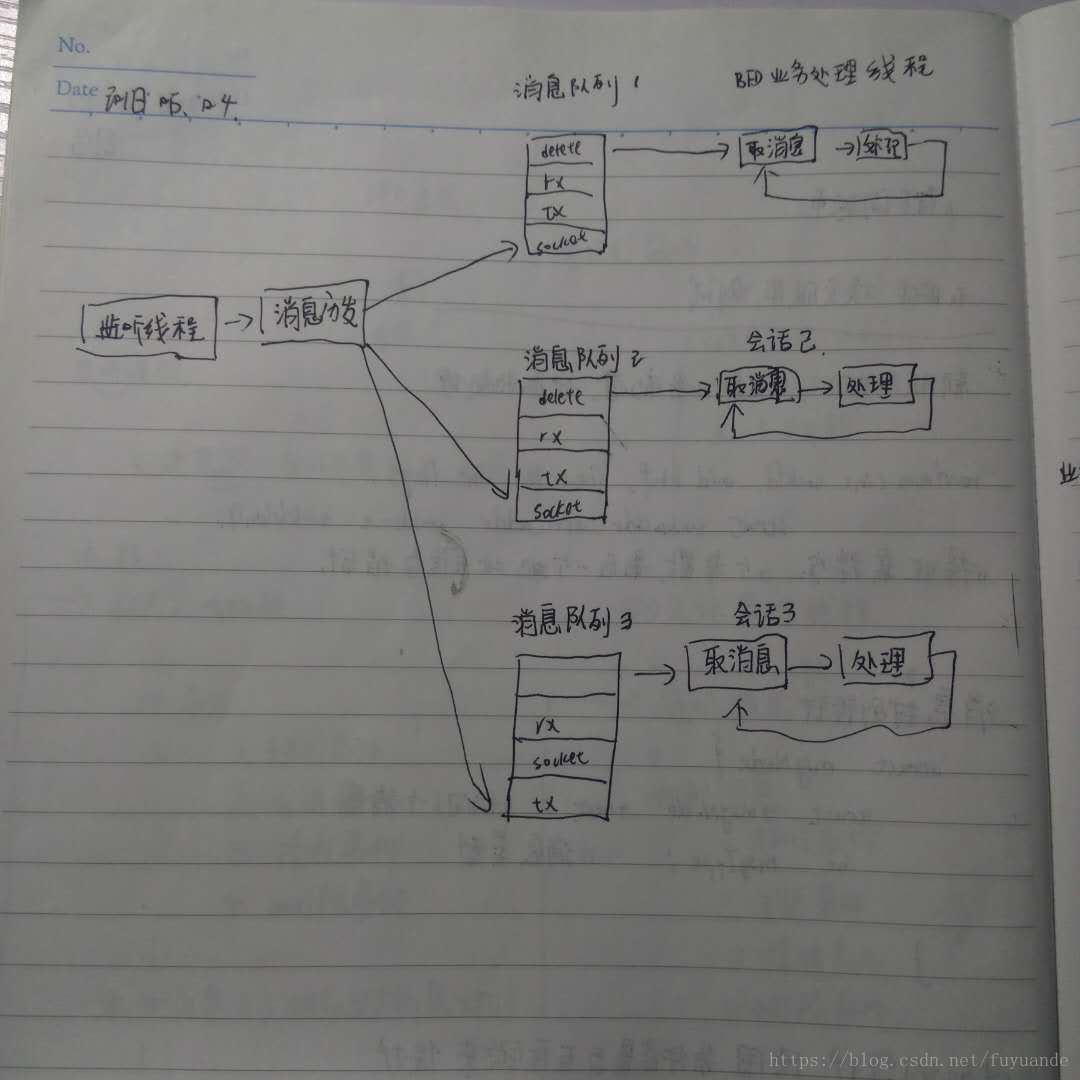 No.
Date
消息队列 1
BFD 业务处理线程
delete
rx
tx
socket
取消息
处理
监听线程
消息分发
消息队列 2
会话2
delete
rx
tx
socket
取消息
处理
消息队列 3
会话3
rx
socket
tx
取消息
处理
https://blog.csdn.net/fuyuande